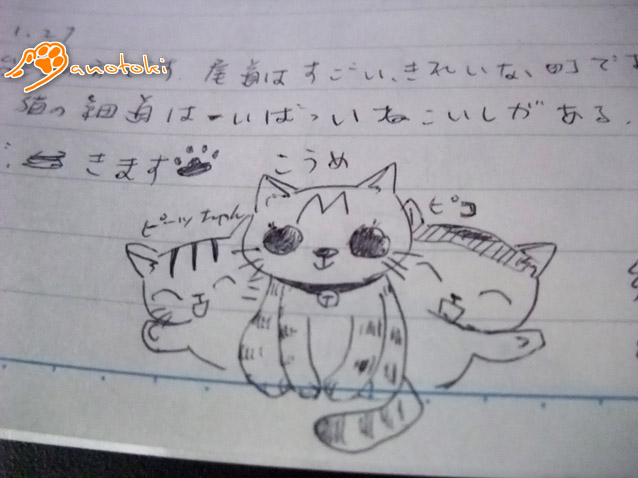 1.27
anotoki
す 尾道はすごい、きれいな町です
猫の細道はいっぱいねこいしがある。
きます
こうめ
ピーツちゃん
ピコ